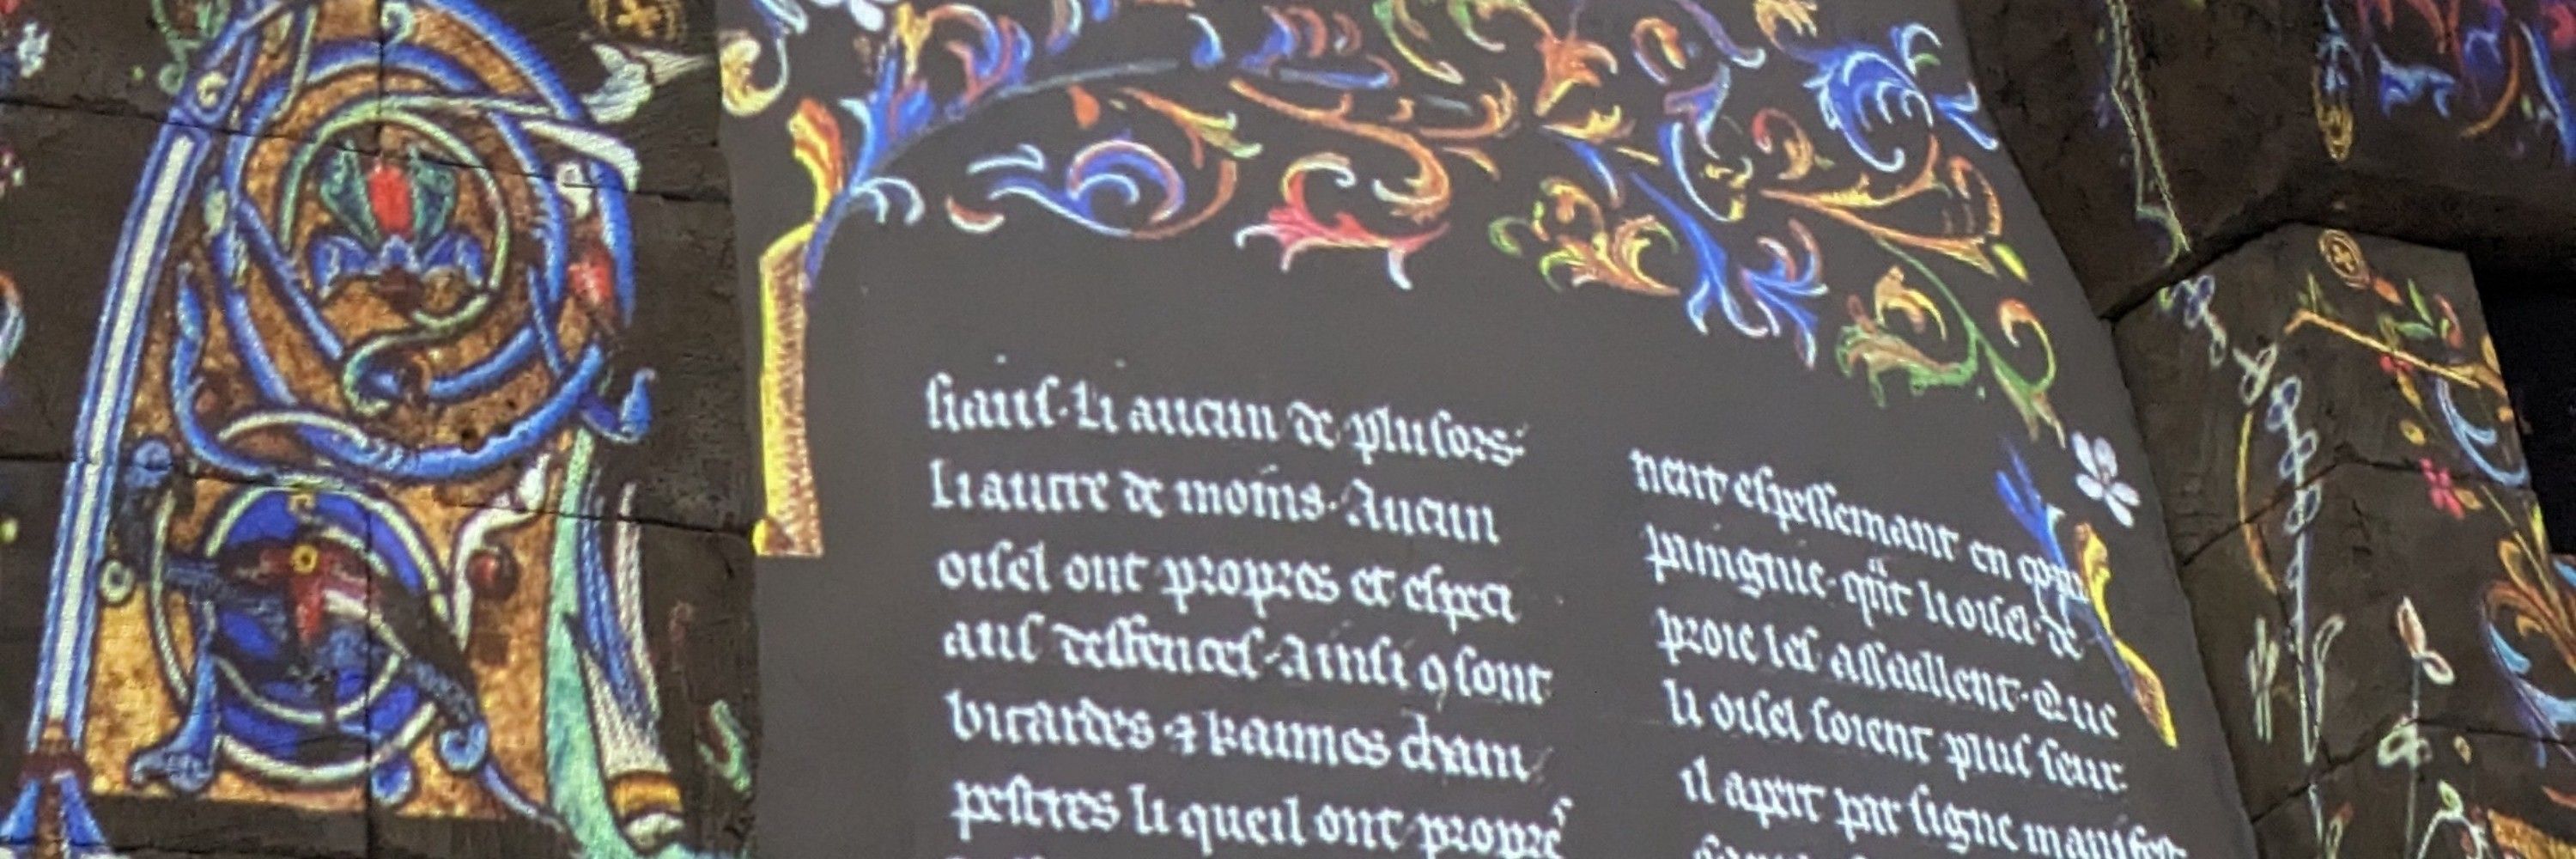 siaus. Li aucun de plusors.
Li autre de moins. Aucun
oisel ont propres et especi
aus deffences. Ainsi 9 sont
bitardes ⁊ kannes cham
pestres li queil ont propre
nent espessemant en
pungnie. q̃nt li oisel de
proie les assaillent. Que
li oisel soient plus seur.
il apert par signe manifest